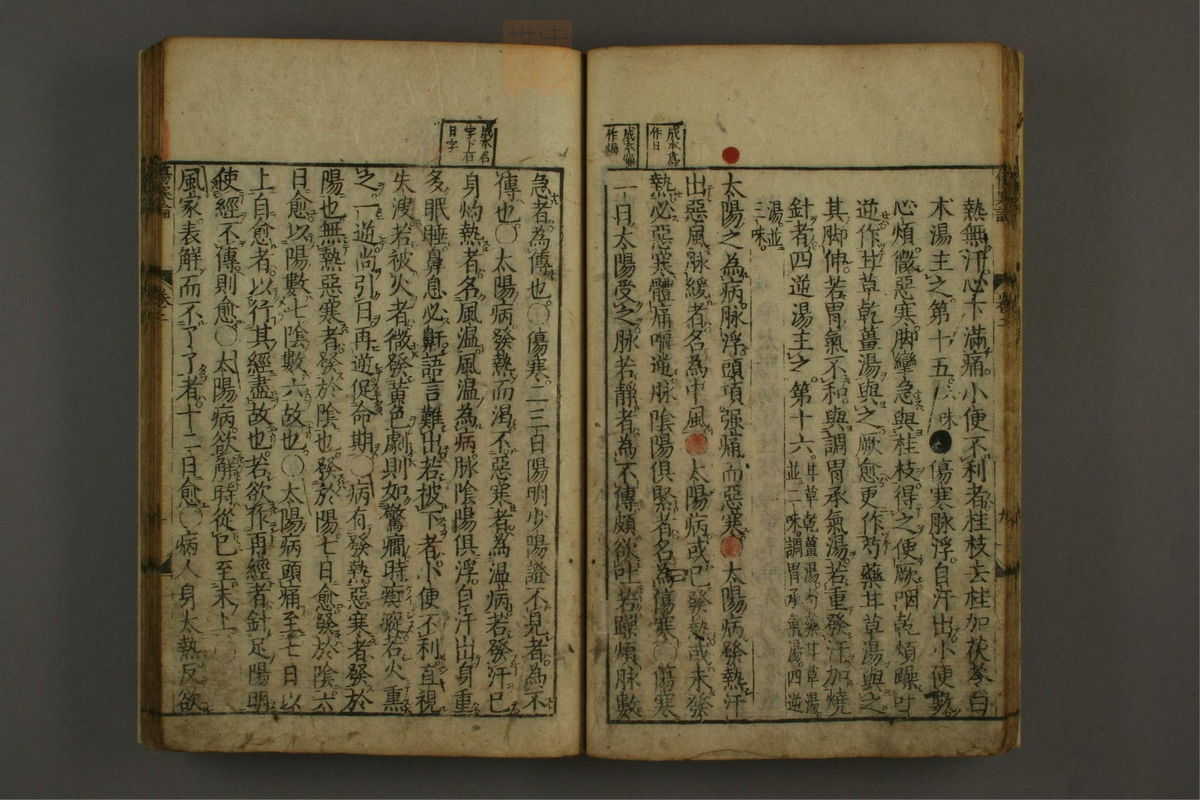 熱無汗心下滿痛小便不利者桂枝去桂加茯苓白
木湯主之第十五六味●傷寒脉浮自汗出小便數
心煩微惡寒脚攣急與桂枝得之便厥咽乾煩躁吐
逆作甘草乾薑湯與之厥愈更作芍藥甘草湯與之
其脚伸若胃氣不和與調胃承氣湯若重發汗加燒
針者四逆湯主之第十六甘草乾薑湯芍藥甘草湯
並二味調胃承氣湯四逆
湯並
三味
太陽之為病脉浮頭項强痛而惡寒 太陽病發熱汗
成本爲
作曰
出惡風脉緩者名為中風 太陽病或已發熱或未發
熱必惡寒體痛嘔逆脉陰陽俱緊者名為傷寒○傷寒
一日太陽受之脉若靜者為不傳頗欲吐若躁煩脉數
急者為傳也○傷寒二三日陽明少陽證不見者為不
傳也○太陽病發熱而渴不惡寒者為温病若發汗已
成本名
字下有
曰字
身灼熱者名風温風温為病脉陰陽俱浮自汗出身重
多眠睡鼻息必鼾語言難出若被下者小便不利直視
失溲若被火者微發黄色劇則如驚癇時瘈瘲若火熏
之一逆尚引日再逆促命期○病有發熱惡寒者發於
陽也無熱惡寒者發於陰也發於陽七日愈發於陰六
日愈以陽數七陰數六故也○太陽病頭痛至七日以
上自愈者以行其經盡故也若欲作再經者針足陽明
使經不傳則愈○太陽病欲解時從巳至未上○
風家表解而不了了者十二日愈○病人身太熱反欲